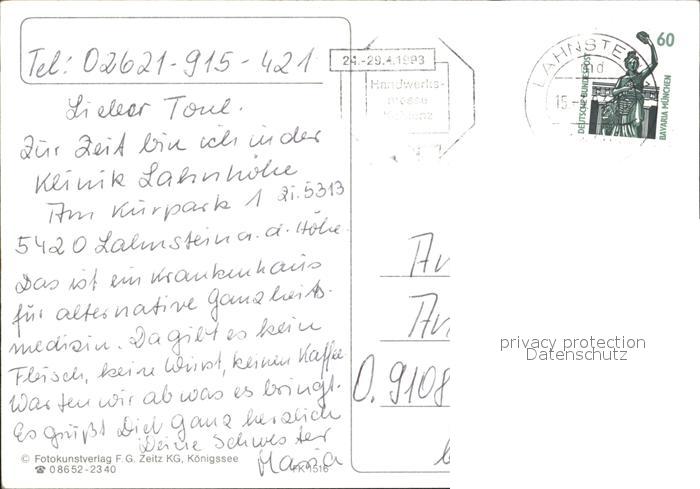 Tel: 02621-915-421
Lieber Toni.
Zur Zeit bin ich in der
Klinik Lahnhöhe
Am Kurpark 1 Zi. 5313
5420 Lahnstein a. d. Höhe.
Das ist ein Krankenhaus
für alternative Ganzheits-
medizin. Da gibt es kein
Fleisch, keine Wurst, keinen Kaffee
Warten wir ab was es bringt.
Es grüßt Dich ganz herzlich
Deine Schwester
Maria
© Fotokunstverlag F. G. Zeitz KG, Königssee
☎ 08652-2340
FK 1516
24.-29.4.1993
Handwerks-
messe
Koblenz
LAHNSTE
15.
60
DEUTSCHE BUNDESPOST
BAYARIA MÜNCHEN
O. 9108
privacy protection
Datenschutz